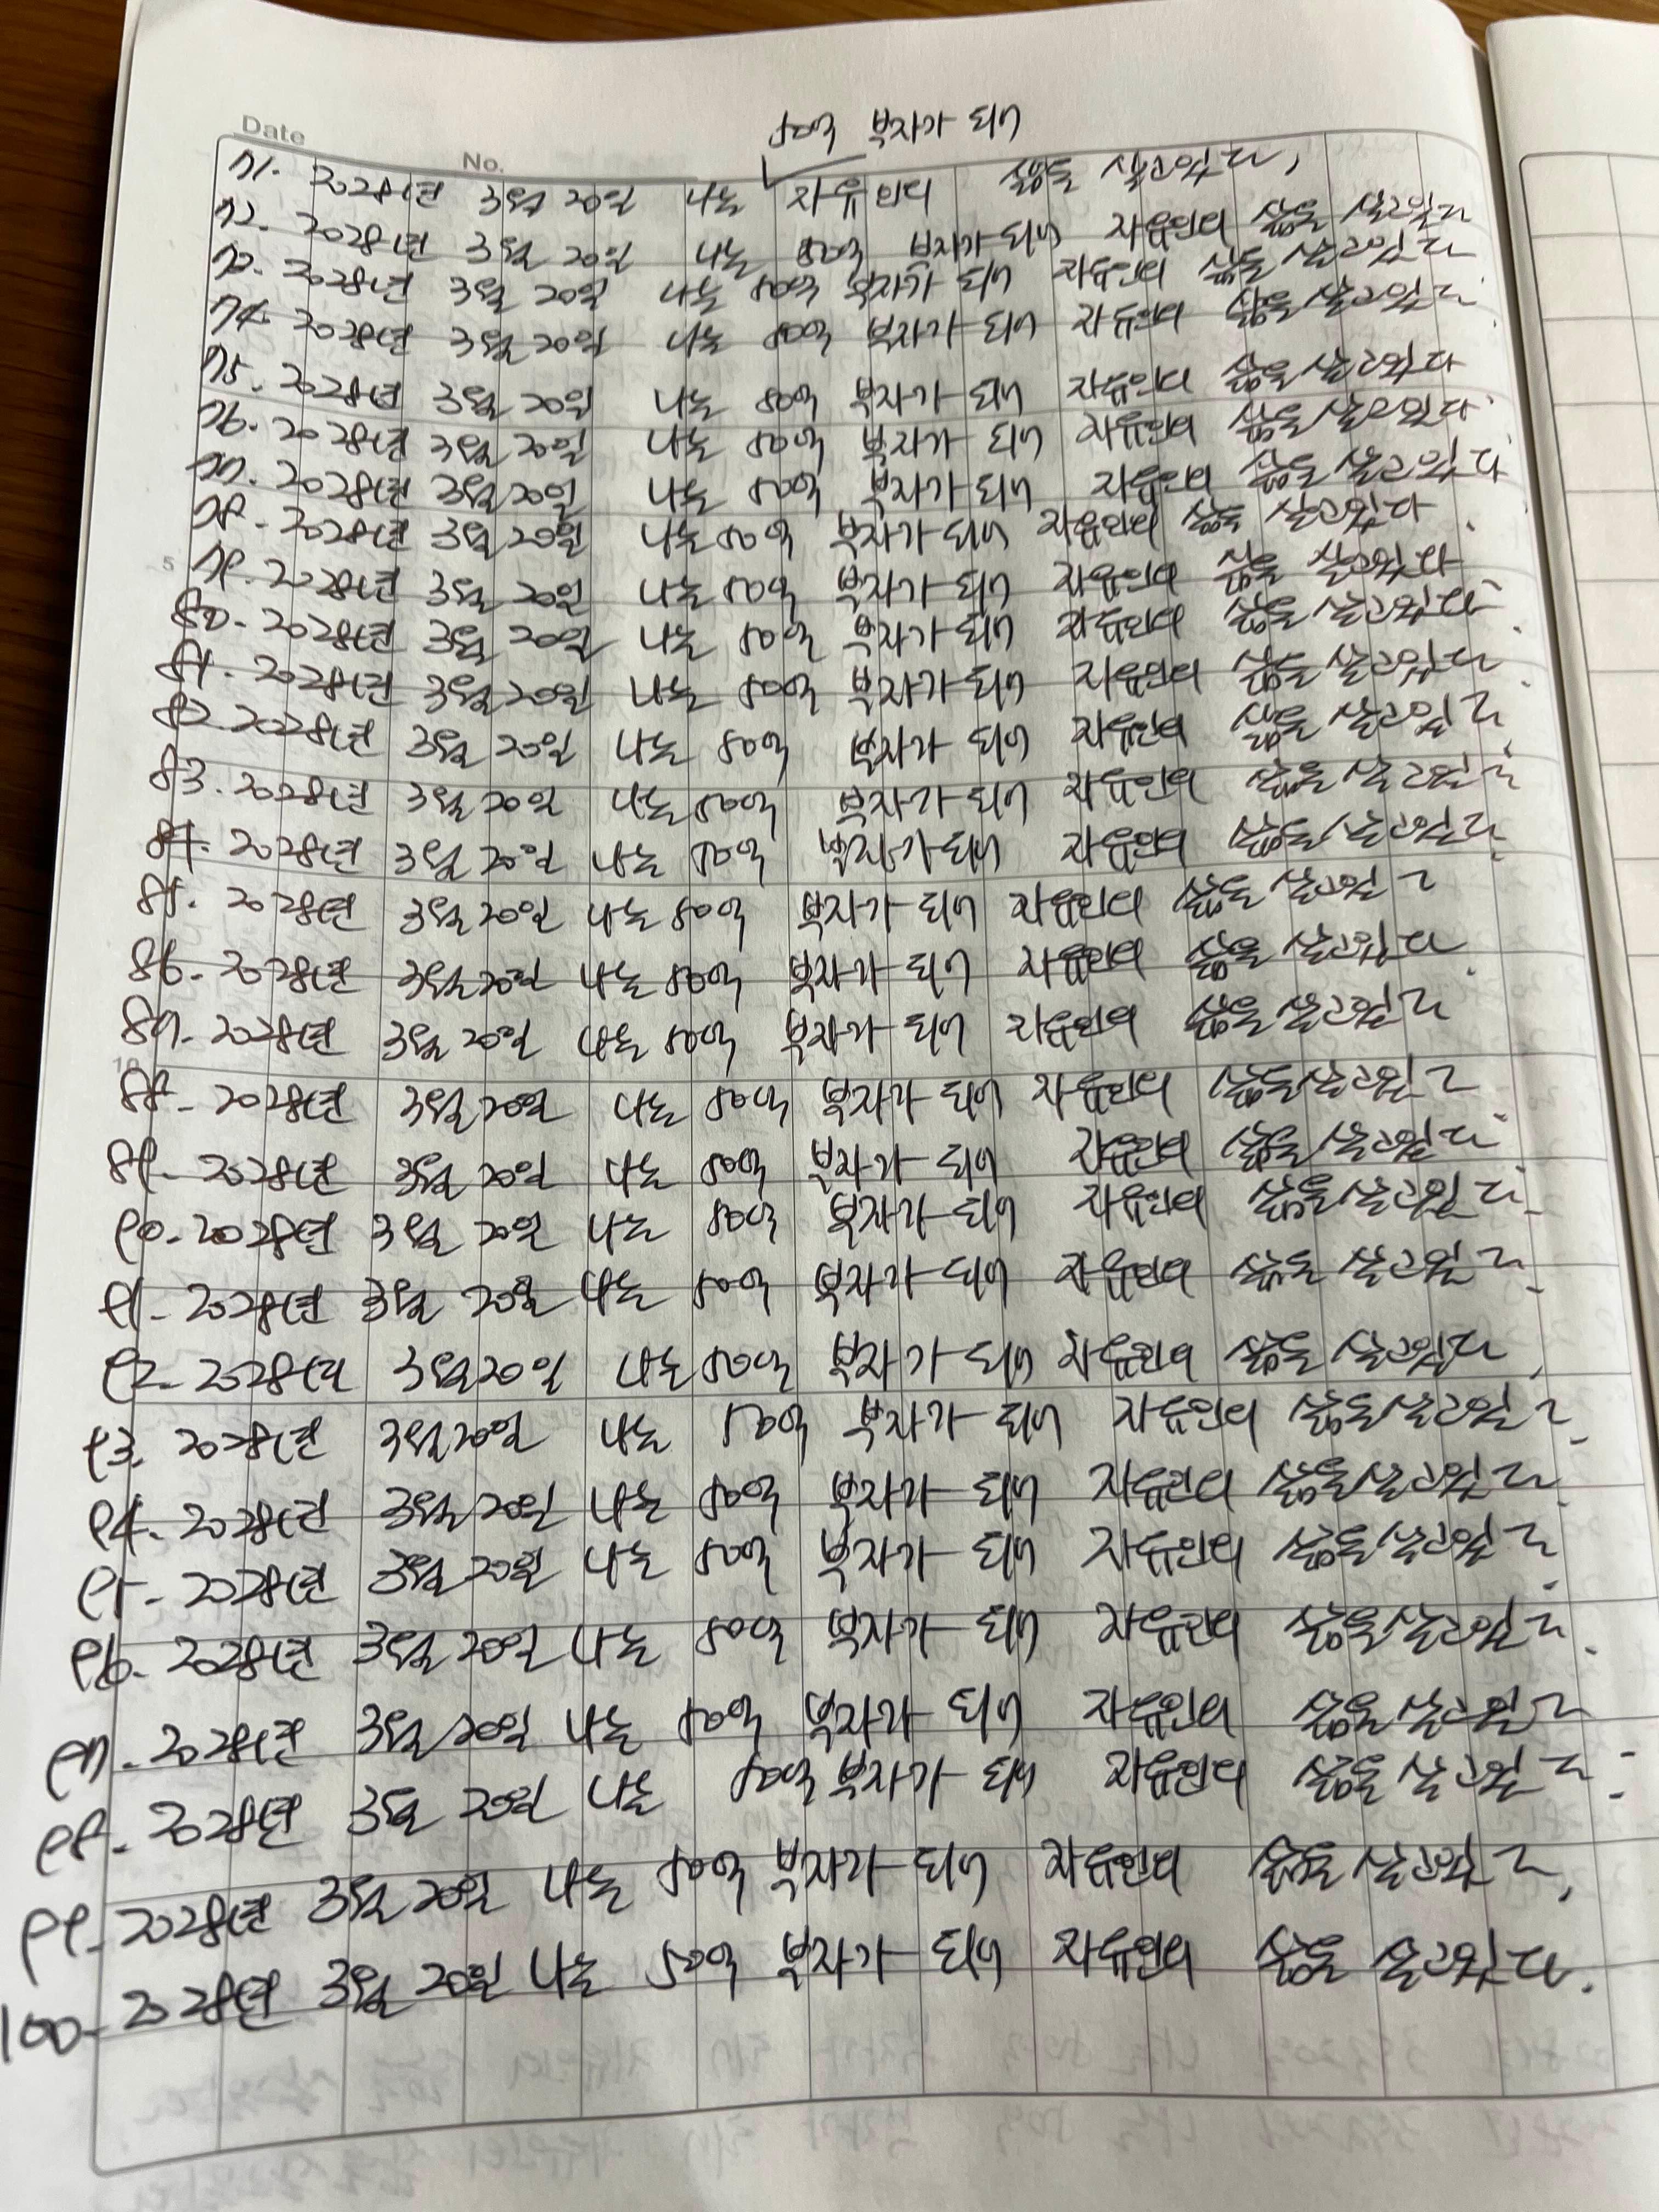 Date
No.
50억 부자가 되어
71. 2028년 3월 20일 나는 자유인의 삶을 살고있다,
72. 2028년 3월 20일 나는 50억 부자가 되어 자유인의 삶을 살고있다
73. 2028년 3월 20일 나는 50억 부자가 되어 자유인의 삶을 살고있다
74. 2028년 3월 20일 나는 50억 부자가 되어 자유인의 삶을 살고있다.
75. 2028년 3월 20일 나는 50억 부자가 되어 자유인의 삶을 살고있다
76. 2028년 3월 20일 나는 50억 부자가 되어 자유인의 삶을 살고있다.
77. 2028년 3월 20일 나는 50억 부자가 되어 자유인의 삶을 살고있다
78. 2028년 3월 20일 나는 50억 부자가 되어 자유인의 삶을 살고있다.
5
79. 2028년 3월 20일 나는 50억 부자가 되어 자유인의 삶을 살고있다
80. 2028년 3월 20일 나는 50억 부자가 되어 자유인의 삶을 살고있다.
81. 2028년 3월 20일 나는 50억 부자가 되어 자유인의 삶을 살고있다.
82. 2028년 3월 20일 나는 50억 부자가 되어 자유인의 삶을 살고있다.
83. 2028년 3월 20일 나는 50억 부자가 되어 자유인의 삶을 살고있다
84. 2028년 3월 20일 나는 50억 부자가 되어 자유인의 삶을 살고있다.
85. 2028년 3월 20일 나는 50억 부자가 되어 자유인의 삶을 살고있다
86. 2028년 3월 20일 나는 50억 부자가 되어 자유인의 삶을 살고있다.
87. 2028년 3월 20일 나는 50억 부자가 되어 자유인의 삶을 살고있다
10
88. 2028년 3월 20일 나는 50억 부자가 되어 자유인의 삶을 살고있다.
89. 2028년 3월 20일 나는 50억 부자가 되어 자유인의 삶을 살고있다.
90. 2028년 3월 20일 나는 50억 부자가 되어 자유인의 삶을 살고있다.
91. 2028년 3월 20일 나는 50억 부자가 되어 자유인의 삶을 살고있다.
92. 2028년 3월 20일 나는 50억 부자가 되어 자유인의 삶을 살고있다,
93. 2028년 3월 20일 나는 50억 부자가 되어 자유인의 삶을 살고있다.
94. 2028년 3월 20일 나는 50억 부자가 되어 자유인의 삶을 살고있다.
95. 2028년 3월 20일 나는 50억 부자가 되어 자유인의 삶을 살고있다.
96. 2028년 3월 20일 나는 50억 부자가 되어 자유인의 삶을 살고있다.
97. 2028년 3월 20일 나는 50억 부자가 되어 자유인의 삶을 살고있다.
98. 2028년 3월 20일 나는 50억 부자가 되어 자유인의 삶을 살고있다.
99. 2028년 3월 20일 나는 50억 부자가 되어 자유인의 삶을 살고있다,
100- 2028년 3월 20일 나는 50억 부자가 되어 자유인의 삶을 살고있다.